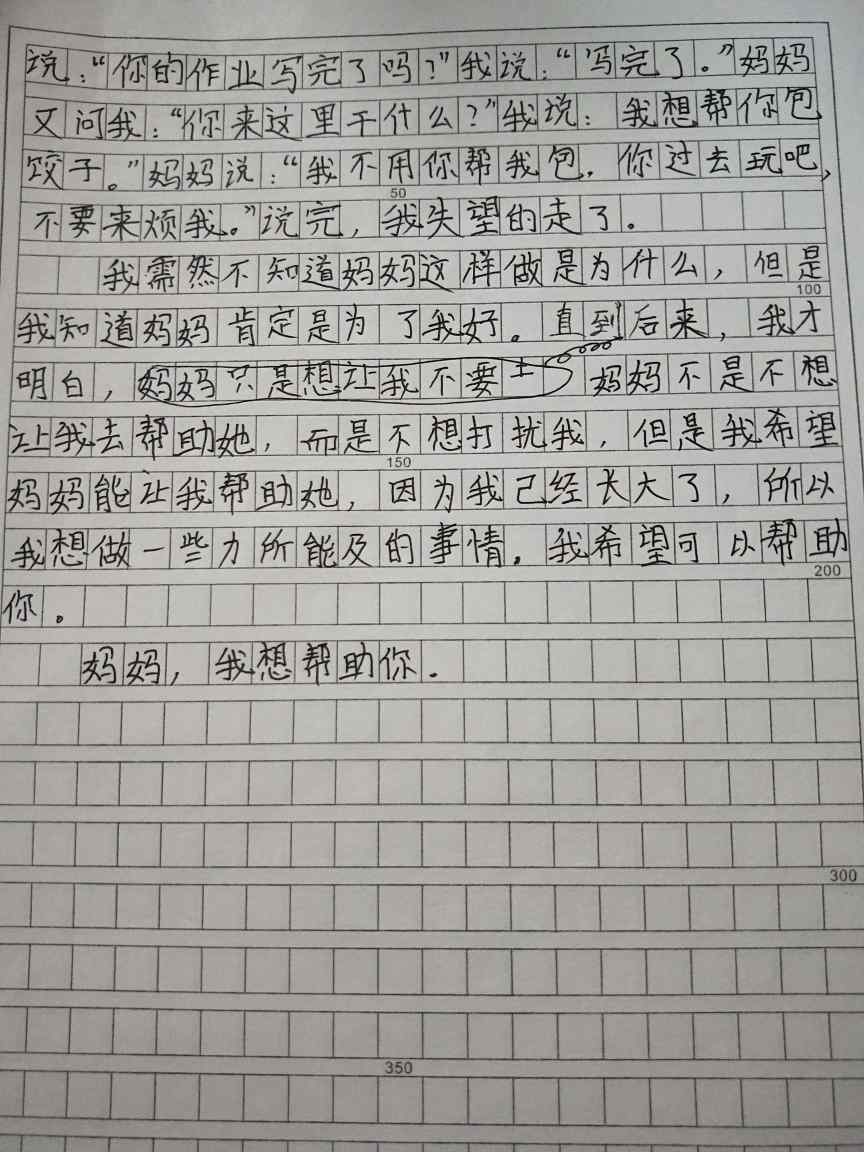 说：“你的作业写完了吗？”我说：“写完了。”妈妈
又问我：“你来这里干什么？”我说：我想帮你包
饺子。”妈妈说：“我不用你帮我包．你过去玩吧，
50
不要来烦我。”说完，我失望的走了。
我需然不知道妈妈这样做是为什么，但是
100
我知道妈妈肯定是为了我好。直到后来，我才
明白，妈妈只是想让我不要 妈妈不是不想
让我去帮助她，而是不想打扰我，但是我希望
150
妈妈能让我帮助她，因为我己经长大了，所以
我想做一些力所能及的事情．我希望可以帮助
200
你。
妈妈，我想帮助你．
300
350